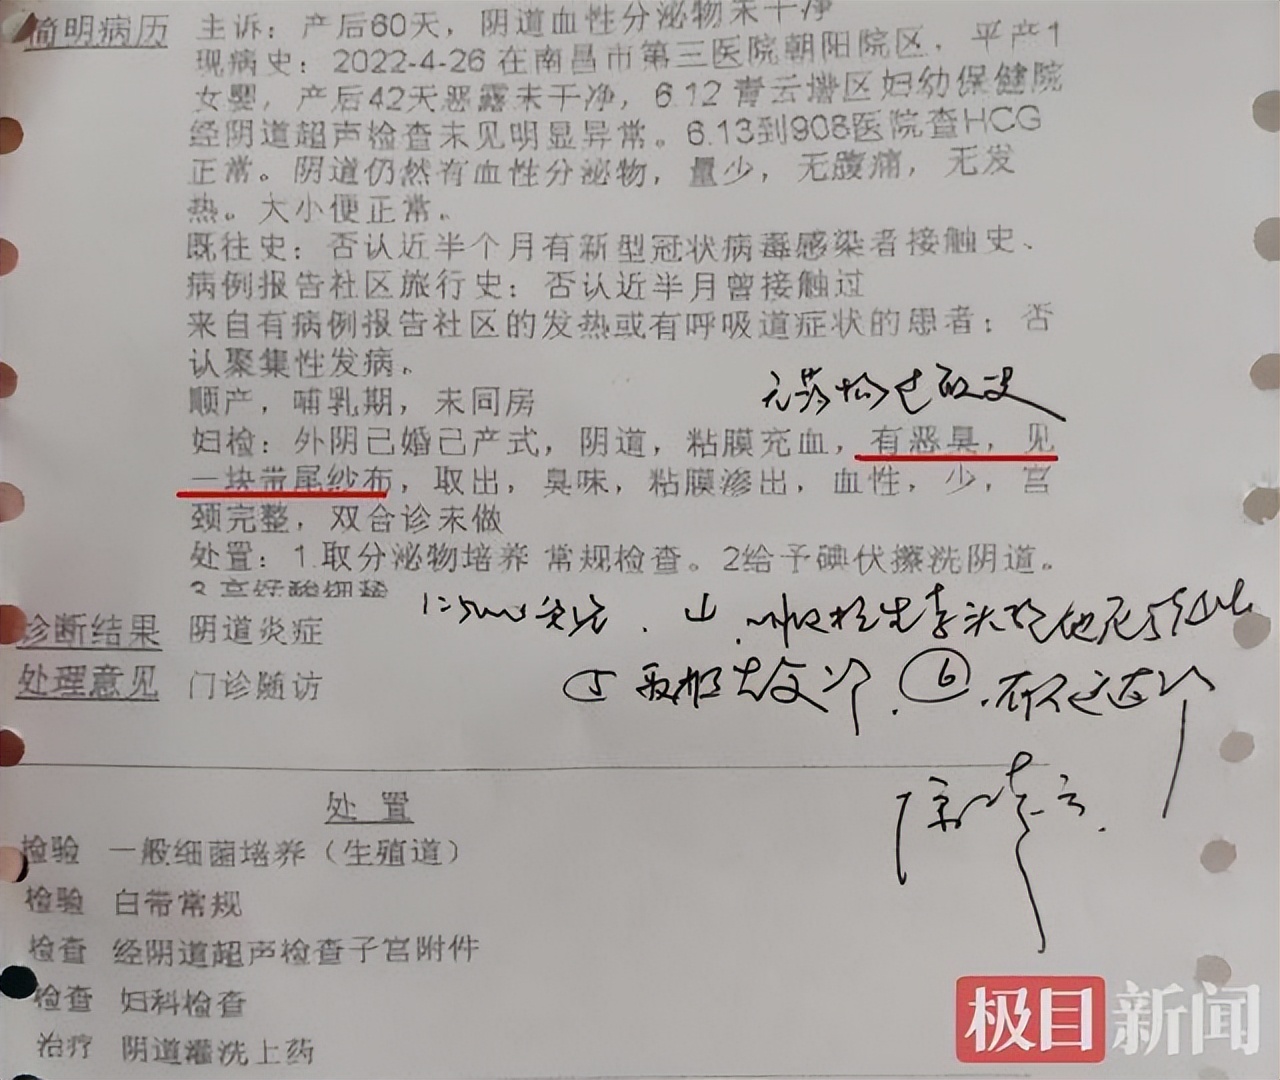 简明病历 主诉：产后60天，阴道血性分泌物未干净
现病史：2022-4-26 在南昌市第三医院朝阳院区，平产1
女婴，产后42天恶露未干净，6.12 青云谱区妇幼保健院
经阴道超声检查未见明显异常。6.13到908医院查HCG
正常。阴道仍然有血性分泌物，量少，无腹痛，无发
热。大小便正常。
既往史：否认近半个月有新型冠状病毒感染者接触史、
病例报告社区旅行史：否认近半月曾接触过
来自有病例报告社区的发热或有呼吸道症状的患者；否
认聚集性发病。
无药物过敏史
顺产，哺乳期，未同房
妇检：外阴已婚已产式，阴道，粘膜充血，有恶臭，见
一块带尾纱布，取出，臭味，粘膜渗出，血性，少，宫
颈完整，双合诊未做
处置：1.取分泌物培养 常规检查。2给予碘伏擦洗阴道。
3.高锰酸钾稀
诊断结果 阴道炎症
处理意见 门诊随访
⑤
⑥
处 置
检验 一般细菌培养（生殖道）
检验 白带常规
检查 经阴道超声检查子宫附件
检查 妇科检查
治疗 阴道灌洗上药
极目新闻